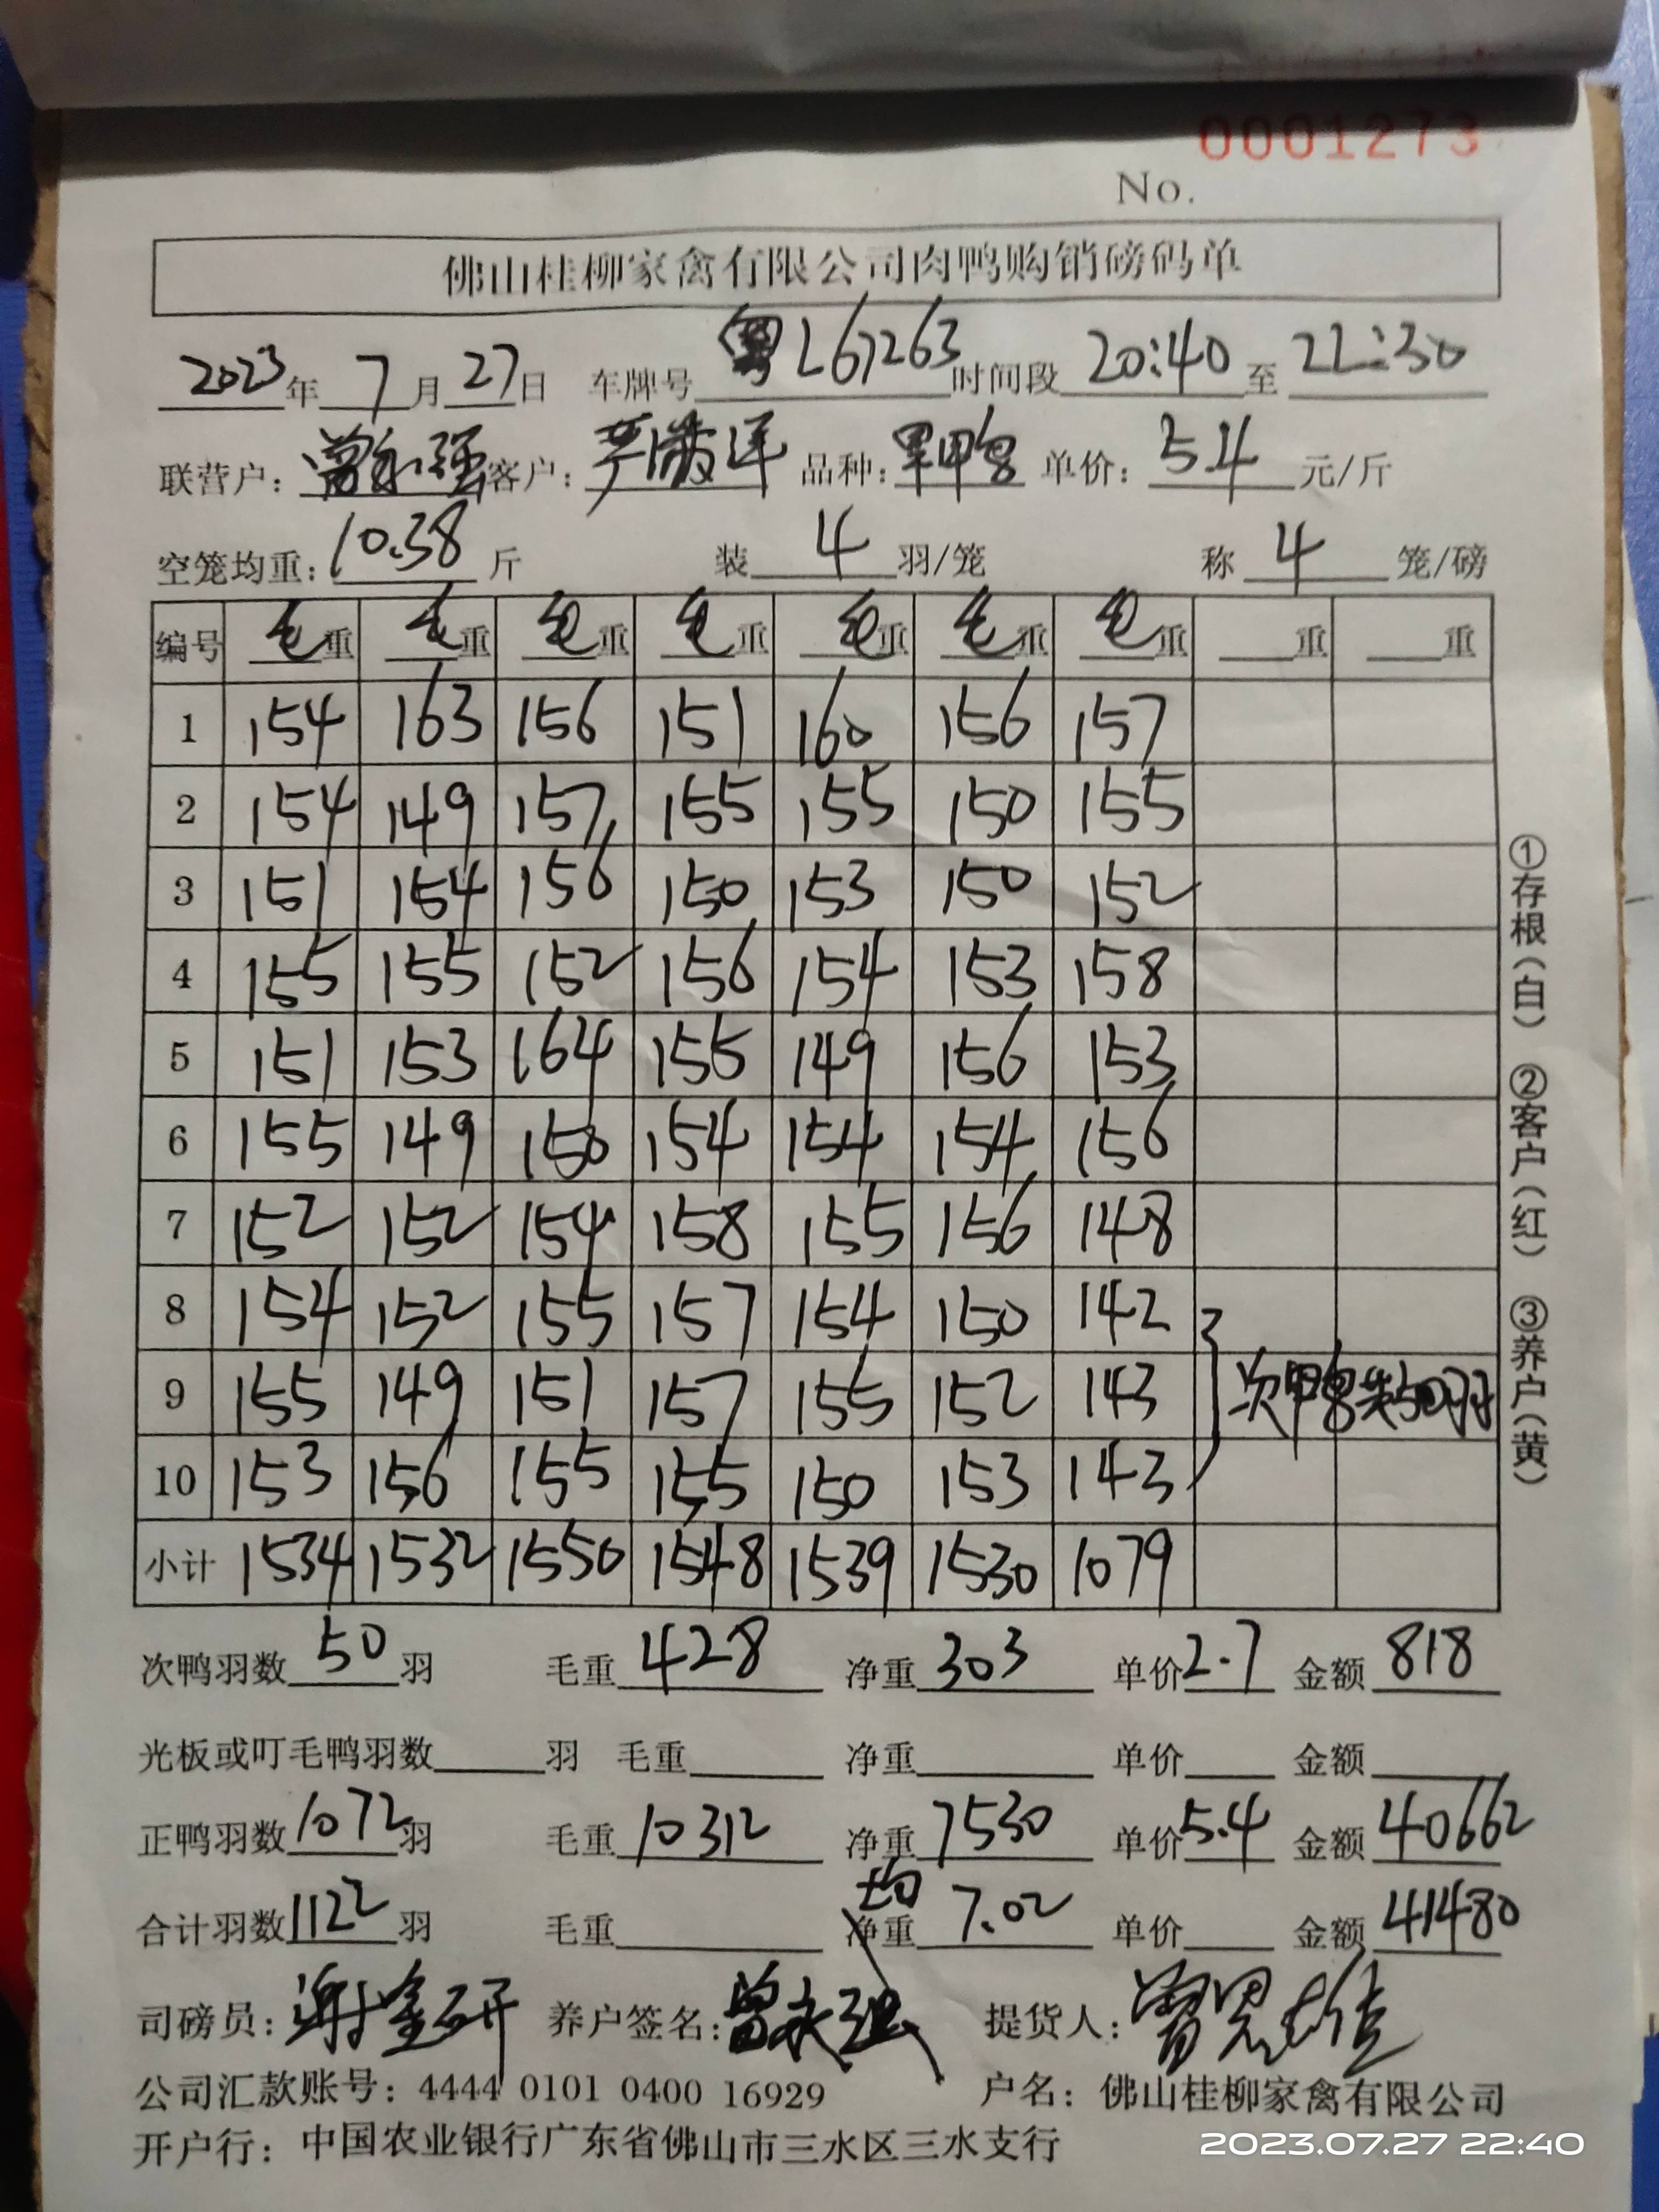 0001273
No.
佛山桂柳家禽有限公司肉鸭购销磅码单
2023年 7月 27日 车牌号 粤L67263 时间段 20:40 至 22:30
联营户: 曾永强 客户: 严 洋 品种: 单价: 5.4 元/斤
空笼均重: 10.38 斤 装 4 羽/笼 称 4 笼/磅
编号 毛重 毛重 毛重 毛重 毛重 毛重 毛重 重 重
1 154 163 156 151 160 156 157
2 154 149 157 155 155 150 155
3 151 154 156 150 153 150 152
4 155 155 152 156 154 153 158
5 151 153 164 155 149 156 153
6 155 149 150 154 154 154 156
7 152 152 154 158 155 156 148
8 154 152 155 157 154 150 142
9 155 149 151 157 155 152 143 次鸭共50羽
10 153 156 155 155 150 153 143
小计 1534 1532 1550 1548 1539 1530 1079
次鸭羽数 50 羽 毛重 428 净重 303 单价 2.7 金额 818
光板或叮毛鸭羽数 羽 毛重 净重 单价 金额
正鸭羽数 1072 羽 毛重 10312 净重 7530 单价 5.4 金额 40662
合计羽数 1122 羽 毛重 均 净重 7.02 单价 金额 41480
司磅员: 谢金研 养户签名: 曾永强 提货人:
公司汇款账号: 4444 0101 0400 16929 户名: 佛山桂柳家禽有限公司
开户行: 中国农业银行广东省佛山市三水区三水支行
①存根(白) ②客户(红) ③养户(黄)
2023.07.27 22:40